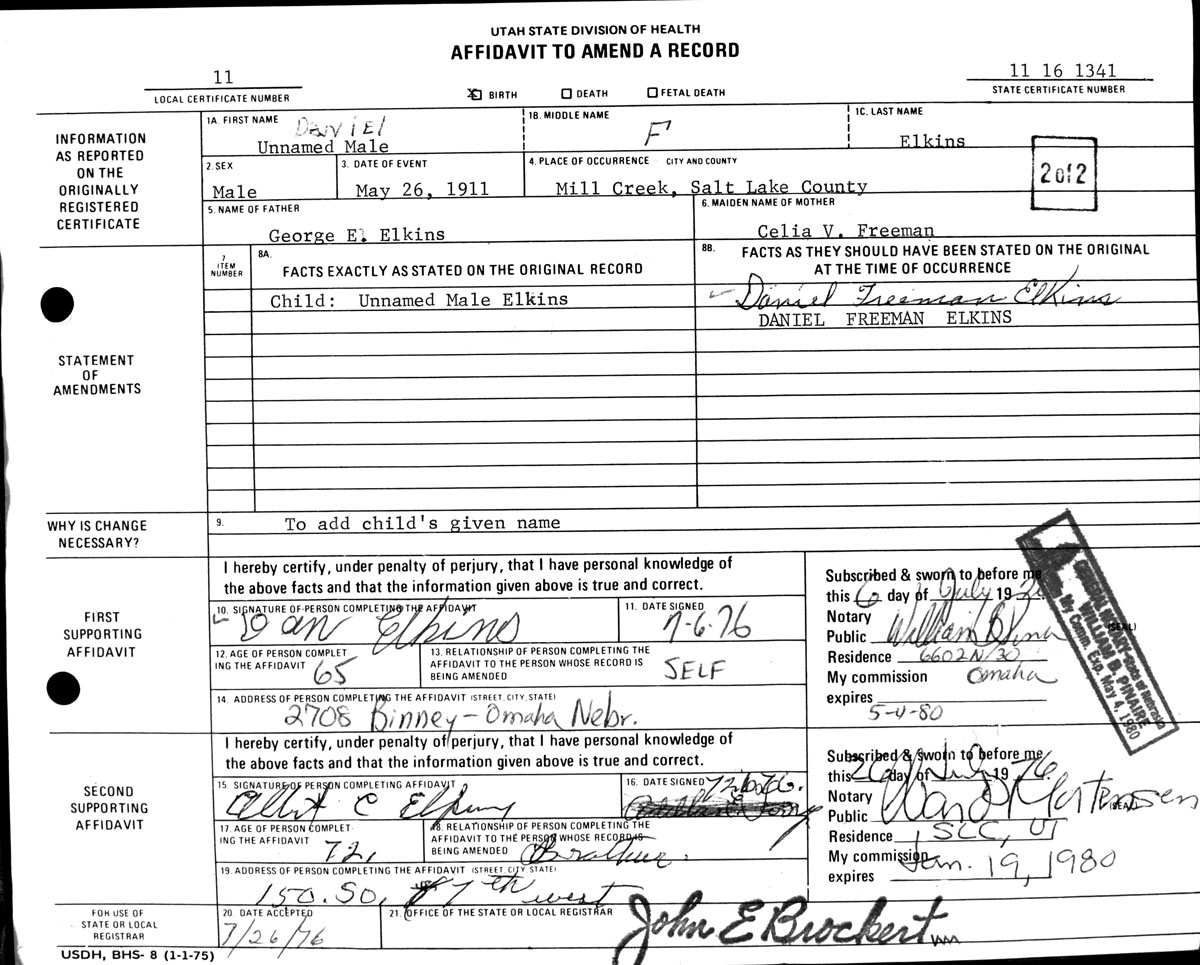 UTAH STATE DIVISION OF HEALTH
AFFIDAVIT TO AMEND A RECORD
11
LOCAL CERTIFICATE NUMBER
X BIRTH DEATH FETAL DEATH
11 16 1341
STATE CERTIFICATE NUMBER
INFORMATION
AS REPORTED
ON THE
ORIGINALLY
REGISTERED
CERTIFICATE
1A. FIRST NAME
DANIEL
Unnamed Male
1B. MIDDLE NAME
F
1C. LAST NAME
Elkins
2. SEX
Male
3. DATE OF EVENT
May 26, 1911
4. PLACE OF OCCURRENCE CITY AND COUNTY
Mill Creek, Salt Lake County
2 of 2
5. NAME OF FATHER
George E. Elkins
6. MAIDEN NAME OF MOTHER
Celia V. Freeman
STATEMENT
OF
AMENDMENTS
7
ITEM
NUMBER
8A.
FACTS EXACTLY AS STATED ON THE ORIGINAL RECORD
8B. FACTS AS THEY SHOULD HAVE BEEN STATED ON THE ORIGINAL
AT THE TIME OF OCCURRENCE
Child: Unnamed Male Elkins
Daniel Freeman Elkins
DANIEL FREEMAN ELKINS
WHY IS CHANGE
NECESSARY?
9. To add child's given name
FIRST
SUPPORTING
AFFIDAVIT
I hereby certify, under penalty of perjury, that I have personal knowledge of
the above facts and that the information given above is true and correct.
10. SIGNATURE OF PERSON COMPLETING THE AFFIDAVIT
Dan Elkins
11. DATE SIGNED
7-6-76
12. AGE OF PERSON COMPLET
ING THE AFFIDAVIT 65
13. RELATIONSHIP OF PERSON COMPLETING THE
AFFIDAVIT TO THE PERSON WHOSE RECORD IS
BEING AMENDED SELF
14. ADDRESS OF PERSON COMPLETING THE AFFIDAVIT (STREET, CITY, STATE)
2708 Binney - Omaha Nebr.
Subscribed & sworn to before me
this 6 day of July 19
Notary
Public William B
Residence 6602 N 30
Omaha
My commission
expires
5-4-80
(SEAL)
GENERAL NOTARY - State of Nebraska
WILLIAM B. PINAIRE
My Comm. Exp. May 4, 1980
SECOND
SUPPORTING
AFFIDAVIT
I hereby certify, under penalty of perjury, that I have personal knowledge of
the above facts and that the information given above is true and correct.
15 SIGNATURE OF PERSON COMPLETING AFFIDAVIT
C Elkins
16. DATE SIGNED
17. AGE OF PERSON COMPLET
ING THE AFFIDAVIT 72,
18. RELATIONSHIP OF PERSON COMPLETING THE
AFFIDAVIT TO THE PERSON WHOSE RECORD IS
BEING AMENDED Brother.
19. ADDRESS OF PERSON COMPLETING THE AFFIDAVIT (STREET, CITY, STATE)
150. SO, 7th west
Subscribed & sworn to before me
this 26 day of July 1976
Notary
Public Ward Mortensen
(SEAL)
Residence SLC, UT
My commission
expires Jan. 19, 1980
FOR USE OF
STATE OR LOCAL
REGISTRAR
20. DATE ACCEPTED
7/26/76
21. OFFICE OF THE STATE OR LOCAL REGISTRAR
John E Brockert
USDH, BHS- 8 (1-1-75)